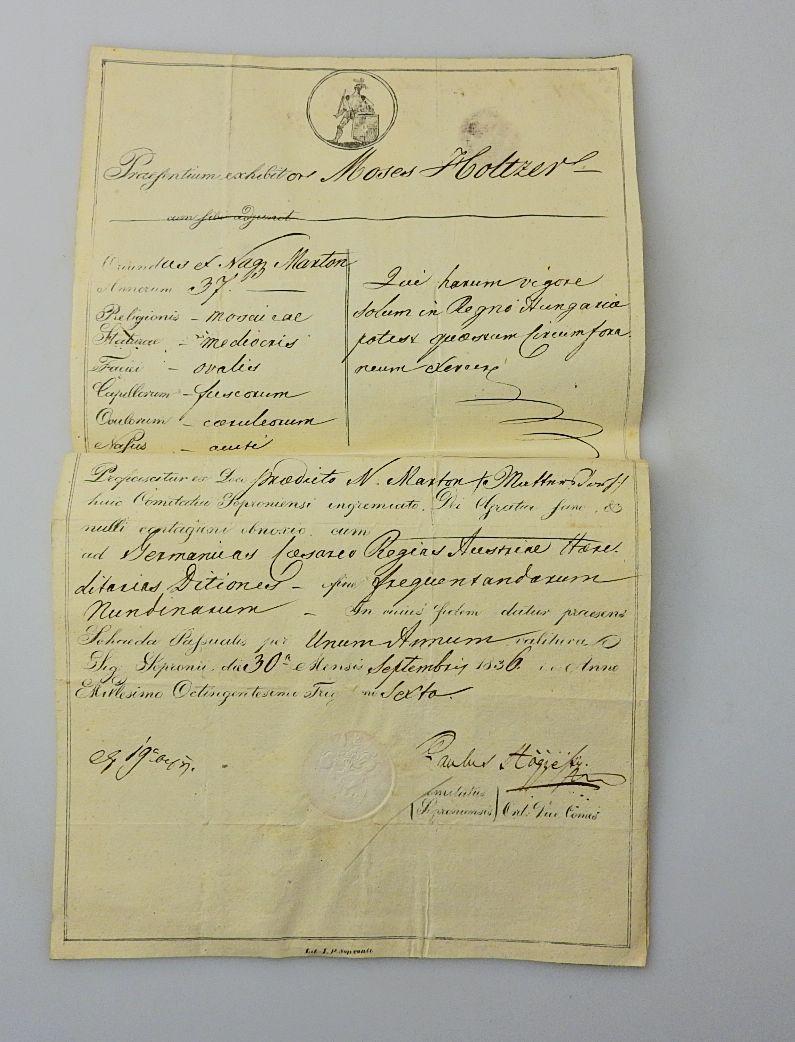 Praesentium exhibitors Moses Holtzer
cum sibi adjunct
Oriundus ex Nagy Marton
Annorum 37.
Religionis - mosaicae
Staturae - mediocris
Faciei - ovalis
Capillorum - fuscorum
Oculorum - caeruleorum
Nasus - acuti
Qui harum vigore
solum in Regno Hungariae
potest quaestum Circumfora
neum exercere
Proficiscitur ex Loco praedicto N. Marton
huic Comitatui Soproniensi ingremiato, Dei Gratia sano, &
nulli contagioni obnoxio, cum
ad Germanicas Caesareo Regias Austriae Haere
ditarias Ditiones - frequentandarum
Nundinarum - In cuius fidem datur praesens
Schaeda Passualis per Unum Annum valitura
Sig. Sopronii, die 30a Mensis Septembris 1836. Anno
Millesimo Octingentesimo Trigesimo Sexto.
Paulus
Comitatus
Soproniensis Ord. Vice Comes